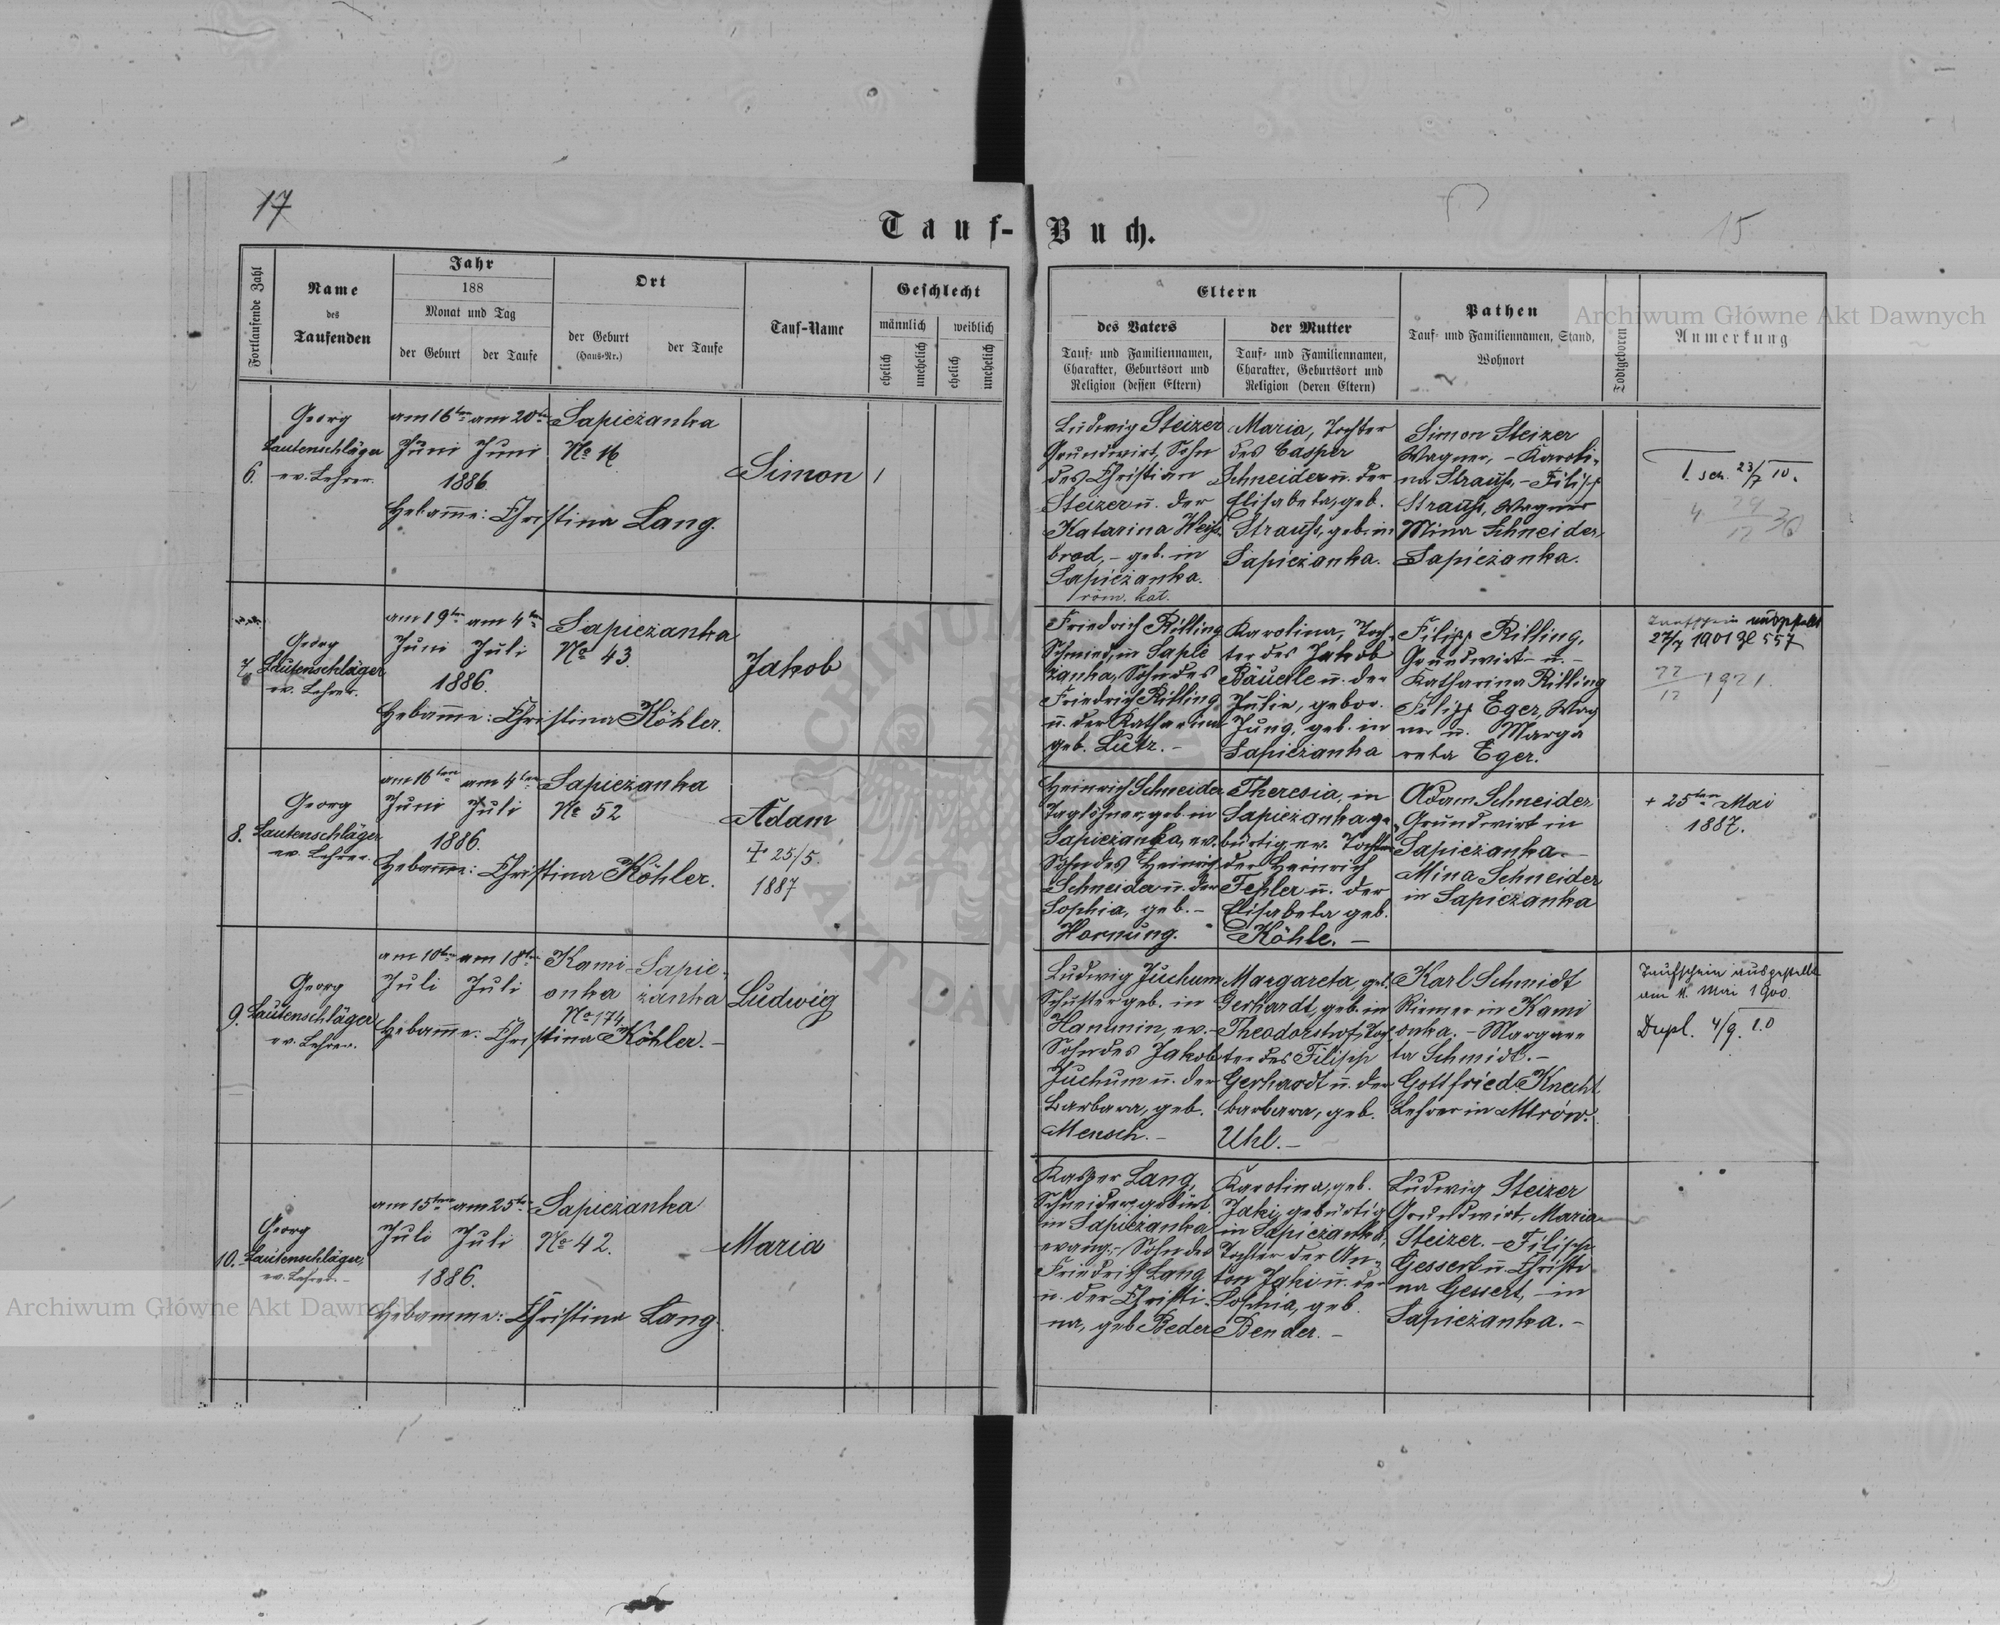 17
Tauf-Buch.
15
Fortlaufende Zahl
Name
des
Taufenden
Jahr
188
Monat und Tag
der Geburt
der Taufe
Ort
der Geburt
(Haus-Nr.)
der Taufe
Tauf-Name
Geschlecht
männlich
weiblich
ehelich
unehelich
ehelich
unehelich
Eltern
des Vaters
Tauf- und Familiennamen,
Charakter, Geburtsort und
Religion (dessen Eltern)
der Mutter
Tauf- und Familiennamen,
Charakter, Geburtsort und
Religion (deren Eltern)
Pathen
Tauf- und Familiennamen, Stand,
Wohnort
Todtgeboren
Anmerkung
Archiwum Główne Akt Dawnych
6.
Georg
Lautenschläger
ev. Lehrer.
am 16ten am 20ten
Juni Juni
1886.
Hebamme: Christina Lang.
Sapieżanka
No 16
Simon
1
Ludwig Steizer
Grundwirt, Sohn
des Christian
Steizer u. der
Katarina Weiß-
brod, - geb. in
Sapieżanka.
röm. kat.
Maria, Tochter
des Casper
Schneider u. der
Elisabeta, geb.
Strauß, geb. in
Sapieżanka.
Simon Steizer
Wagner, - Karoli-
na Strauß, - Filipp
Strauß, Wagner
Mina Schneider,
Sapieżanka.
T. sch. 23/7 10.
7.
Georg
Lautenschläger
ev. Lehrer.
am 19ten am 4ten
Juni Juli
1886.
Hebamme: Christina Köhler.
Sapieżanka
No 43.
Jakob
Friedrich Ritling
Schmied, in Sapie
żanka, Sohn des
Friedrich Ritling
u. der Katharina
geb. Lutz. -
Karolina, Toch-
ter des Jakob
Bäuerle u. der
Julie, gebor.
Jung, geb. in
Sapieżanka
Filipp Ritling,
Grundwirt u. -
Katharina Ritling
Filipp Eger, Wag
ner u. Marga
reta Eger.
Taufschein
27/7 1901 Zl 557
22/12 1921.
8.
Georg
Lautenschläger
ev. Lehrer.
am 16ten am 4ten
Juni Juli
1886.
Hebamme: Christina Köhler.
Sapieżanka
No 52
Adam
† 25/5.
1887
Heinrich Schneider
Taglöhner, geb. in
Sapieżanka, ev.
Sohn des Heinrich
Schneider u. der
Sophia, geb. -
Hornung.
Theresia, in
Sapieżanka ge-
bürtig ev. Tochter
der Heinrich
Teßler u. der
Elisabeta geb.
Köhle. -
Adam Schneider
Grundwirt in
Sapieżanka. -
Mina Schneider
in Sapieżanka
+ 25ten Mai
1887.
9.
Georg
Lautenschläger
ev. Lehrer.
am 10ten am 18ten
Juli Juli
Hebamme: Christina Köhler. -
Kami-
onka
No 174
Sapie-
żanka
Ludwig
Ludwig Juchum
Schuster geb. in
Hanunin, ev. -
Sohn des Jakob
Juchum u. der
Barbara, geb.
Mensch. -
Margareta, geb.
Gerhardt, geb. in
Theodorshof, Toch
ter des Filipp
Gerhardt u. der
Barbara, geb.
Uhl. -
Karl Schmidt
Riemer in Kami
onka. - Margare
ta Schmidt. -
Gottfried Knecht
Lehrer in Mirów.
Taufschein ausgestellt
am 11. Mai 1900.
Dupl. 4/9. 10
10.
Georg
Lautenschläger,
ev. Lehrer. -
am 15ten am 25ten
Juli Juli
1886.
Hebamme: Christina Lang
Sapieżanka
No 42.
Maria
Kasper Lang,
Schneider, gebürt.
in Sapieżanka
evang. - Sohn des
Friedrich Lang
u. der Christi-
na, geb. Beder
Karolina, geb.
Jaki, gebürtig
in Sapieżanka,
Tochter der An-
ton Jaki u. der
Sophia, geb.
Bender. -
Ludwig Steizer
Grundwirt, Maria
Steizer. - Filipp
Gessert u. Christi
na Gessert, - in
Sapieżanka. -
Archiwum Główne Akt Dawnych